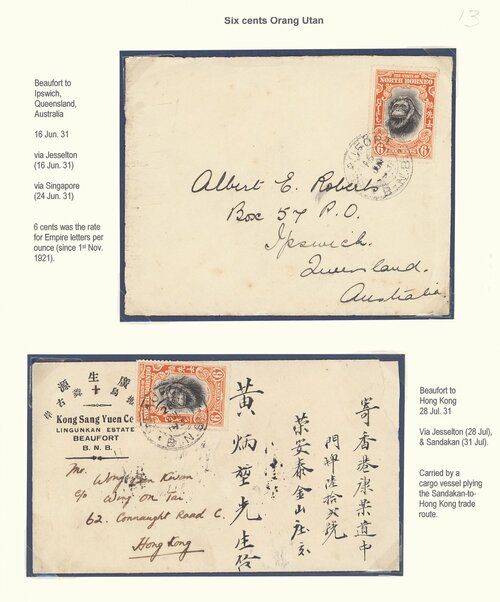 Six cents Orang Utan
13
Beaufort to
Ipswich,
Queensland,
Australia
16 Jun. 31
via Jesselton
(16 Jun. 31)
via Singapore
(24 Jun. 31)
6 cents was the rate
for Empire letters per
ounce (since 1st Nov.
1921).
THE STATE OF
NORTH BORNEO
6
6
B.N.B.
Albert E. Roberts
Box 57 P.O.
Ipswich.
Queensland.
Australia.
廣生源
Kong Sang Yuen Co
LINGUNKAN ESTATE
BEAUFORT
B. N. B.
Mr.
c/o Wing On Tai
62. Connaught Road C.
Hong Kong
寄香港康樂道中
門牌陸拾弍號
榮安泰金山庄交
黃炳堃先生
Beaufort to
Hong Kong
28 Jul. 31
Via Jesselton (28 Jul),
& Sandakan (31 Jul).
Carried by a
cargo vessel plying
the Sandakan-to-
Hong Kong trade
route.